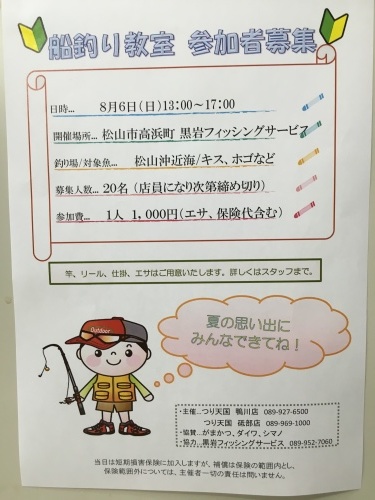 船釣り教室 参加者募集
日時… 8月6日(日)13:00～17:00
開催場所… 松山市高浜町 黒岩フィッシングサービス
釣り場/対象魚… 松山沖近海/キス、ホゴなど
募集人数… 20名(店員になり次第締め切り)
参加費… 1人 1,000円(エサ、保険代含む)
竿、リール、仕掛、エサはご用意いたします。詳しくはスタッフまで。
夏の思い出に
みんなできてね!
Outdoor
・主催…つり天国 鴨川店 089-927-6500
つり天国 砥部店 089-969-1000
・協賛…がまかつ、ダイワ、シマノ
・協力…黒岩フィッシングサービス 089-952-7060
当日は短期損害保険に加入しますが、補償は保険の範囲内とし、
保険範囲外については、主催者一切の責任は問いません。